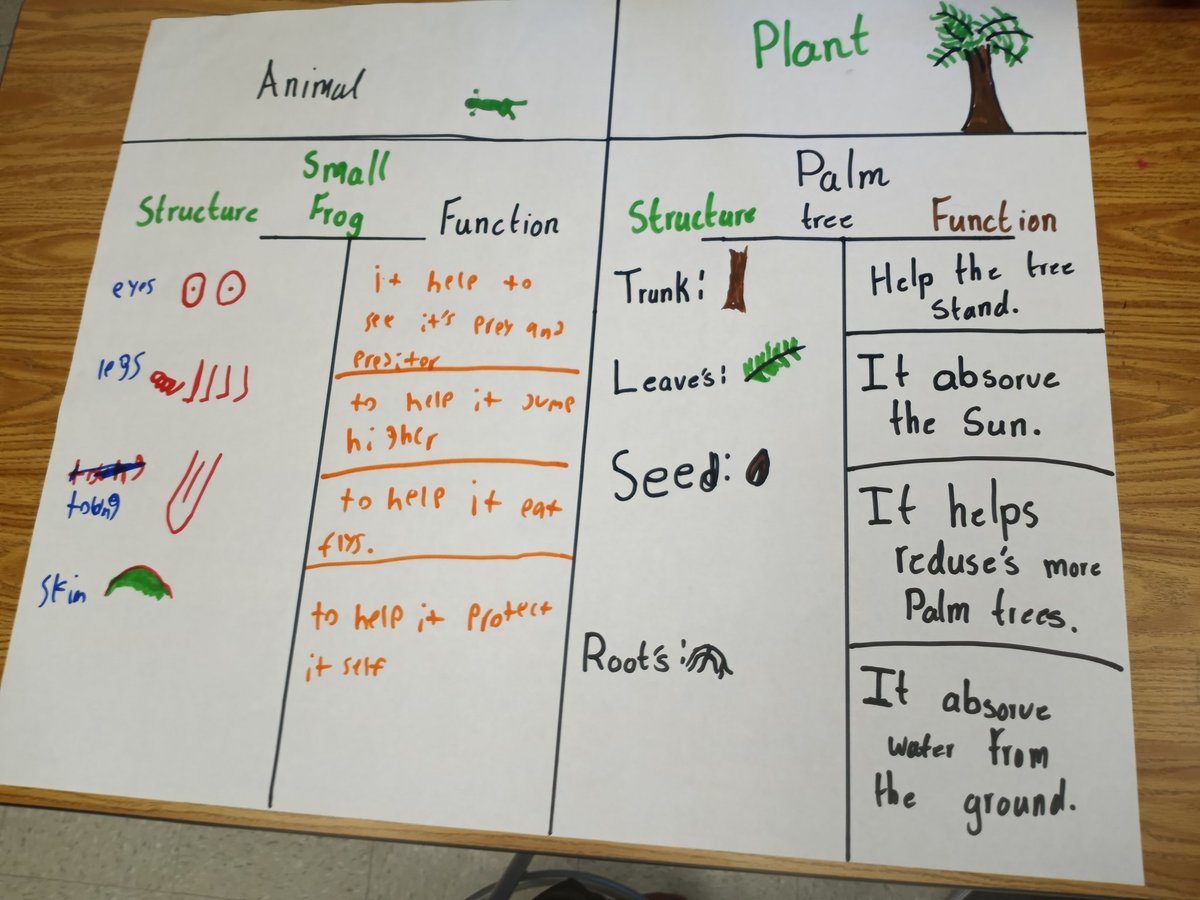 Animal
Small
Structure Frog Function
eyes
it help to
see it's prey and
preditor
legs
to help it jump
higher
toung
to help it eat
flys.
skin
to help it protect
it self
Plant
Palm
Structure tree Function
Trunk:
Help the tree
stand.
Leave's:
It absorve
the Sun.
Seed:
It helps
reduse's more
Palm trees.
Root's:
It absorve
water from
the ground.